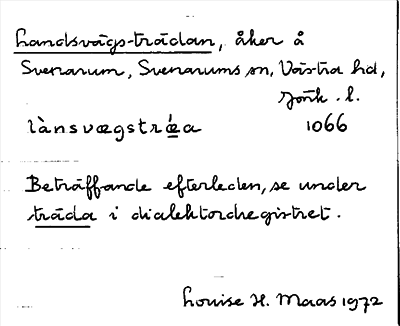 Landsvägs-trädan, åker å
Svenarum, Svenarums sn, Västra hd,
Jönk. l.
lànsvægstrǽa 1066
Beträffande efterleden, se under
träda i dialektordregistret.
Louise H. Maas 1972